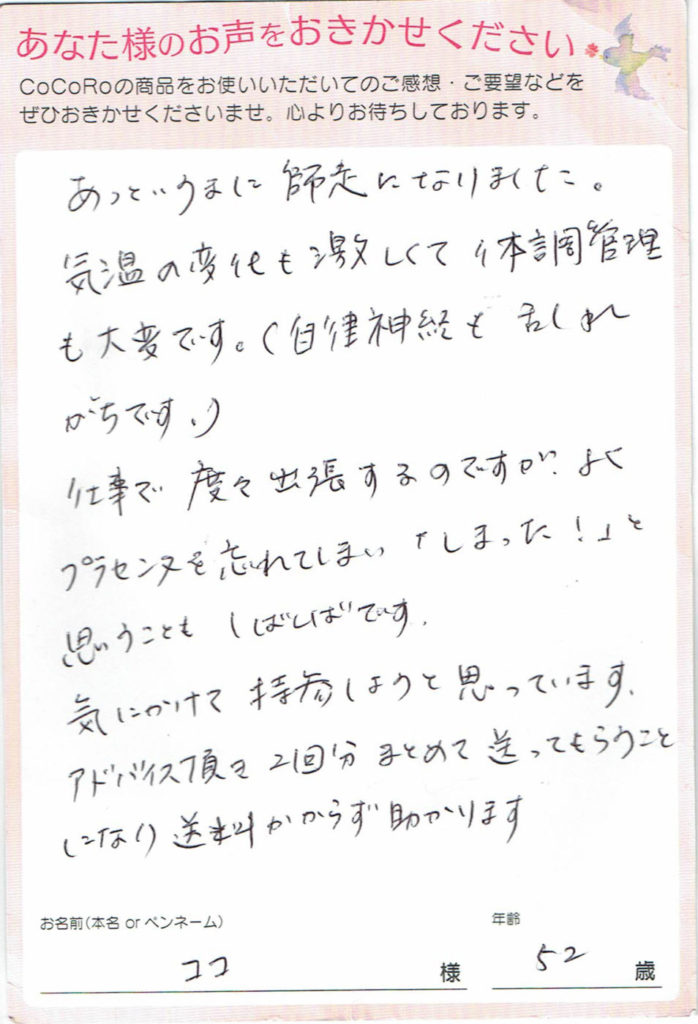 あなた様のお声をおきかせください
CoCoRoの商品をお使いいただいてのご感想・ご要望などを
ぜひおきかせくださいませ。心よりお待ちしております。
あっというまに師走になりました。
気温の変化も激しくて体調管理
も大変です。(自律神経も乱れ
がちです。)
仕事で度々出張するのですが、よく
プラセンタを忘れてしまい「しまった!」と
思うことも しばしばです。
気にかけて持参しようと思っています。
アドバイス頂き 2回分まとめて送ってもらうこと
になり送料かからず助かります
お名前(本名 or ペンネーム)
年齢
ココ 様 52 歳